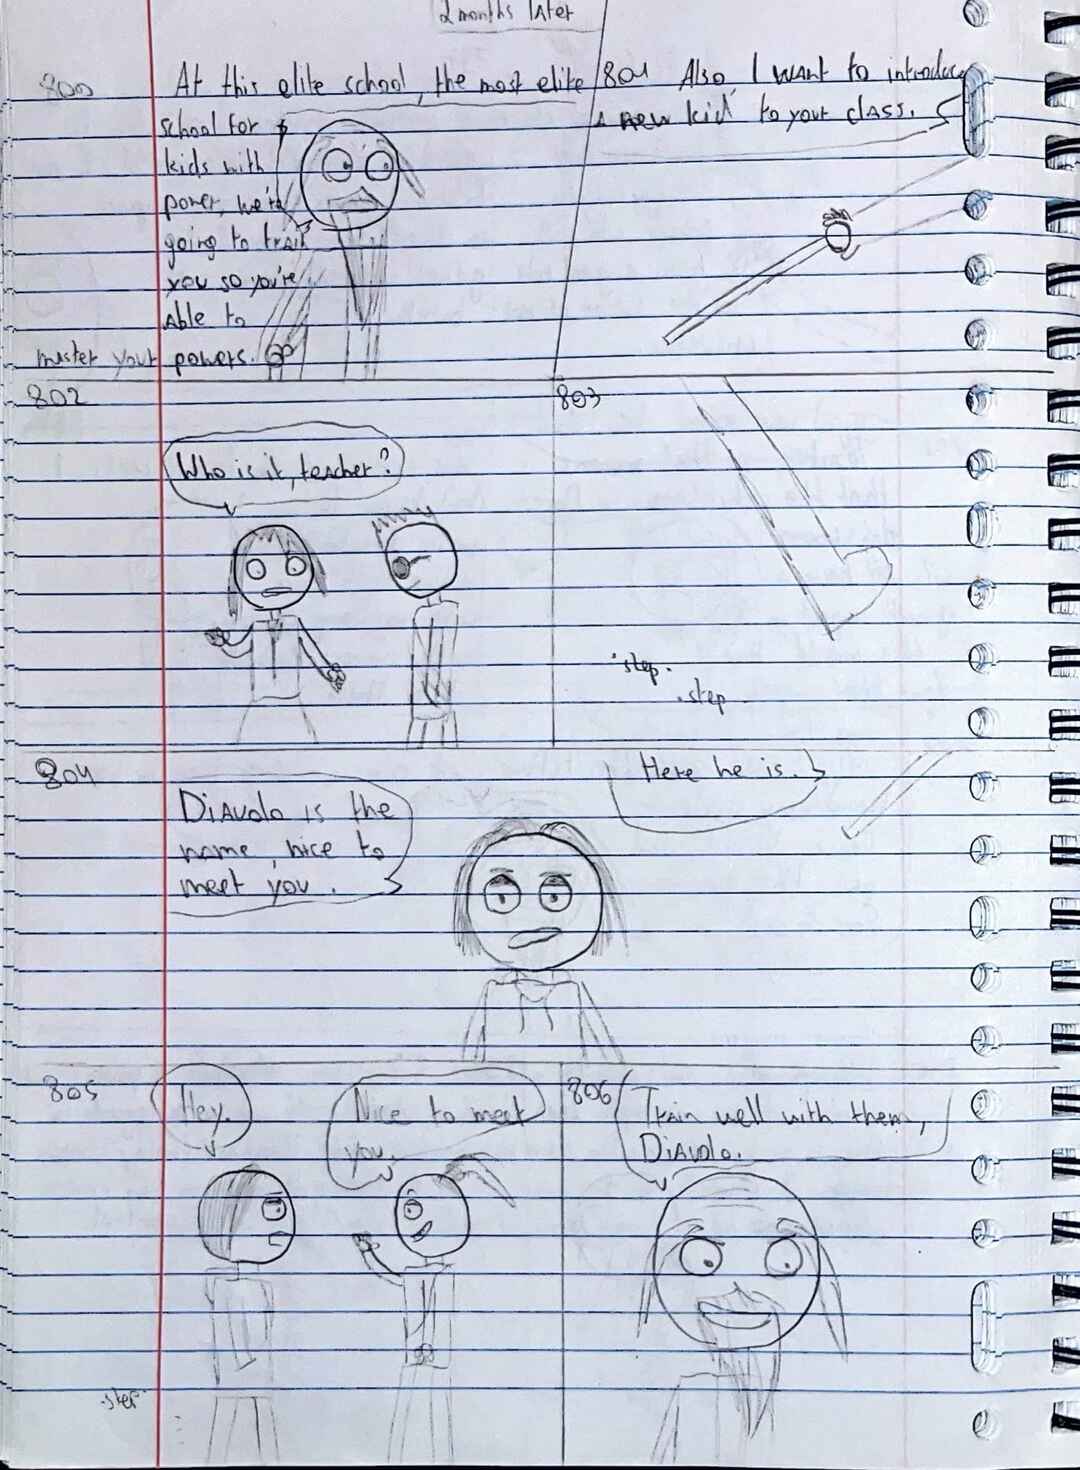 2 months later
800
At this elite school, the most elite
school for
kids with
power, we're
going to train
you so you're
Able to
master your powers.
801
Also, I want to introduce
a new kid to your class.
802
Who is it, teacher?
803
step.
.step
804
Diavolo is the
name, nice to
meet you.
Here he is.
805
Hey.
Nice to meet
you.
.step.
806
Train well with them,
Diavolo.